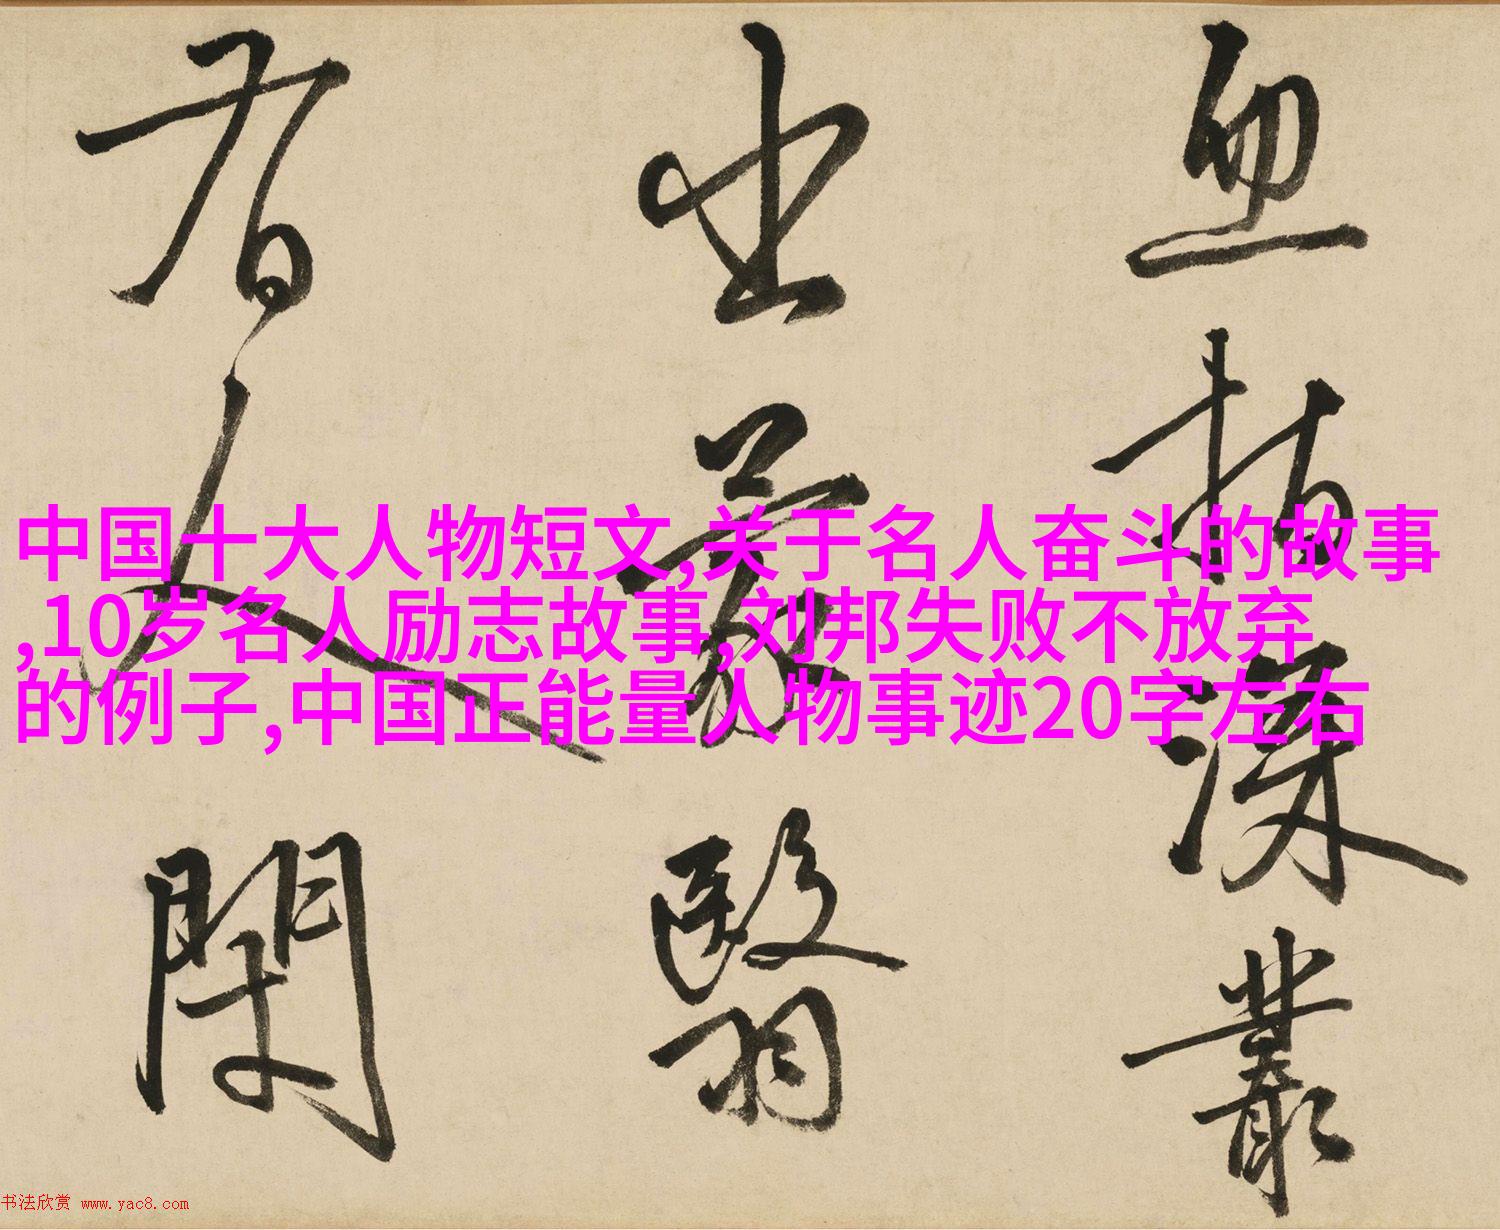 血指深叢
出蒙翳
人
中国十大人物短文,关于名人奋斗的故事
,10岁名人励志故事,刘邦失败不放弃
的例子,中国正能量人物事迹20字左右
书法欣赏 www.yac8.com